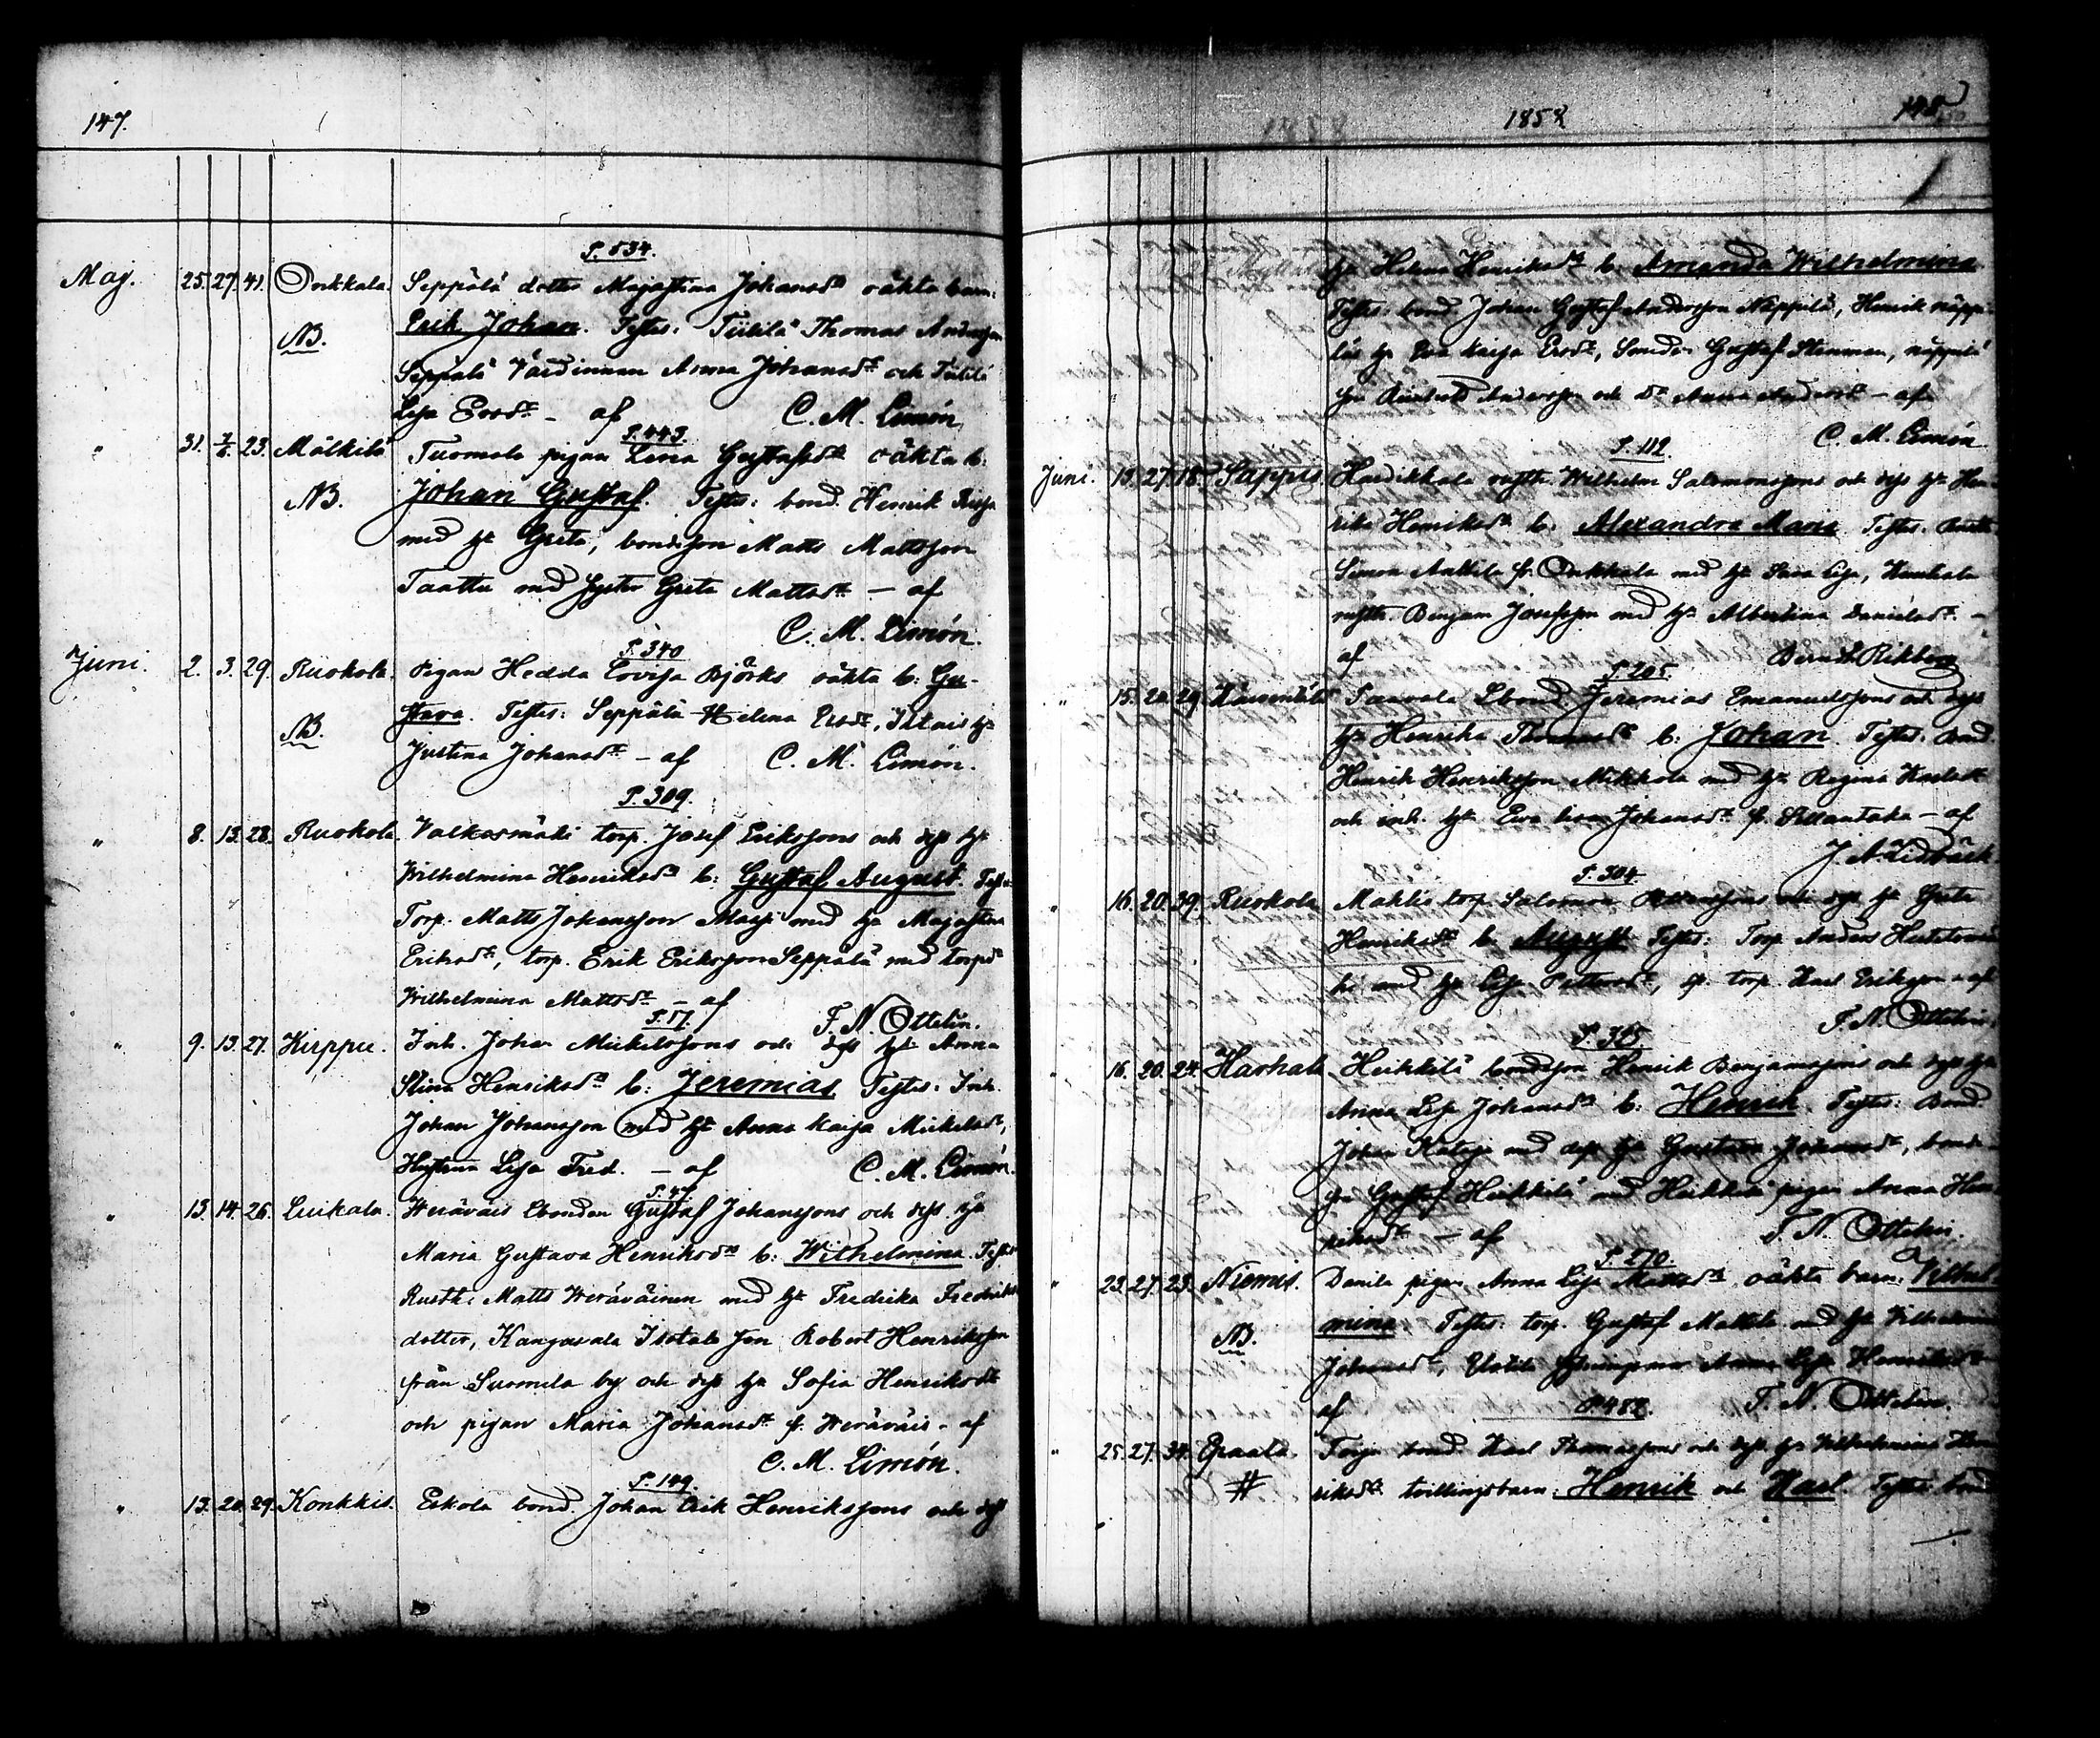 147.
P. 534.
Maj. 25. 27. 41. Onkkala Seppälä dotter Majastina Johansdr oäkta barn:
NB. Erik Johan. Testes: Tiitilä Thomas Andersson
Seppälä Värdinnan Anna Johansdr och Tiitilä
Lisa Ersdr – af C. M. Limón
P. 443.
" 31. 7/6 23. Mälkilä Tuomola pigan Lena Gustafsdr oäkta b:
NB. Johan Gustaf. Testes: bond. Henrik
med h. Greta, bondeson Matts Mattsson
Taatta med syster Greta Mattsdr – af
C. M. Limón.
P. 340
Juni. 2. 3. 29. Ruokola. Pigan Hedda Lovisa Björks oäkta b: Gu-
NB. stava. Testes: Seppälä Helena Ersdr, Iltais h.
Justina Johansdr – af C. M. Limón.
P. 309.
" 8. 13. 28. Ruokola. Valkosmäki torp. Josef Erikssons och dess h.
Wilhelmina Henriksdr b: Gustaf August. Testes:
Torp. Matts Johansson med h. Majastina
Eriksdr, torp. Erik Eriksson Seppälä med torpd.
Wilhelmina Mattsdr – af
P. 17. F. N. Ottelin.
" 9. 13. 27. Kirppu. Inh. Johan Mickelssons och dess h. Anna
Stina Henriksdr b: Jeremias Testes: Inh.
Johan Johansson med h. Anna Kaisa Mickelsdr,
Hustrun Lisa Fred. – af C. M. Limón.
P. 47
" 13. 14. 26. Luikala. Weräväis Lbonden Gustaf Johanssons och dess h.
Maria Gustava Henriksdr b: Wilhelmina. Testes
Rusth: Matts Weräväinen med h. Fredrika Fredriks
dotter, Kangasala Isotalo son Robert Henriksson
från Suomela by och dess h. Sofia Henriksdr
och pigan Maria Johansdr fr. Weräväis – af
C. M. Limón.
P. 149.
" 13. 20. 29. Konkkis. Eskola bond. Johan Erik Henrikssons och dess
1858 148
h. Helena Henriksdr b. Amanda Wilhelmina
Testes: bond. Johan Gustaf Andersson Näppilä, Henrik Näppi-
läs h. Eva Kaisa Ersdr, Smeden Gustaf Stenman, Näppilä
son Andersson och Dr Anna Andersdr – af
C. M. Limón
P. 112.
Juni. 13. 27. 18. Sappis Haidikkala rusth. Wilhelm Salomonssons och dess h. Hen-
rika Henriksdr b: Alexandra Maria Testes: Rusth.
Simon Anttila fr. Onkkala med h. Sara Lisa,
rusth. Benjam Josefsson med h. Albertina Danielsdr. –
af
P. 205.
" 15. 20. 29. Taavola Lbond. Jeremias Emanuelssons och dess
h. Henrika Thomasdr b: Johan. Testes: Bond
Henrik Henriksson Mikkola med h. Regina Karlsdr
och inh. h. Eva Lisa Johansdr fr. – af
P. 304
" 16. 20. 39. Ruokola torp. Salomon och dess h. Greta
Henriksdr b. August Testes: Torp. Anders
ki med h. Lisa Pettersdr, torp. Karl Eriksson – af
F. N. Ottelin.
P. 365
16. 20. 24. Harhala Heikkilä bondeson Henrik Benjamssons och dess h.
Anna Lisa Johansdr b: Henrik Testes: Bond.
Johan med dess h. Gustava Johansdr, bonde-
son Gustaf Heikkilä med Heikkilä pigan Anna Hen-
riksdr – af F. N. Ottelin.
P. 270.
" 23. 27. 23. Niemis. Danila pigan Anna Lisa Mattsdr oäkta barn: Vilhel-
NB. mina. Testes: torp. Gustaf Mattila med h. Vilhelmina
Johansdr, Anna Lisa Henriksdr
af P. 482. F. N. Ottelin.
" 25. 27. 34. Epaala. bond. Karl Thomassons och dess h. Vilhelmina Hen-
# riksdr tvillingsbarn: Henrik och Karl Testes: bond